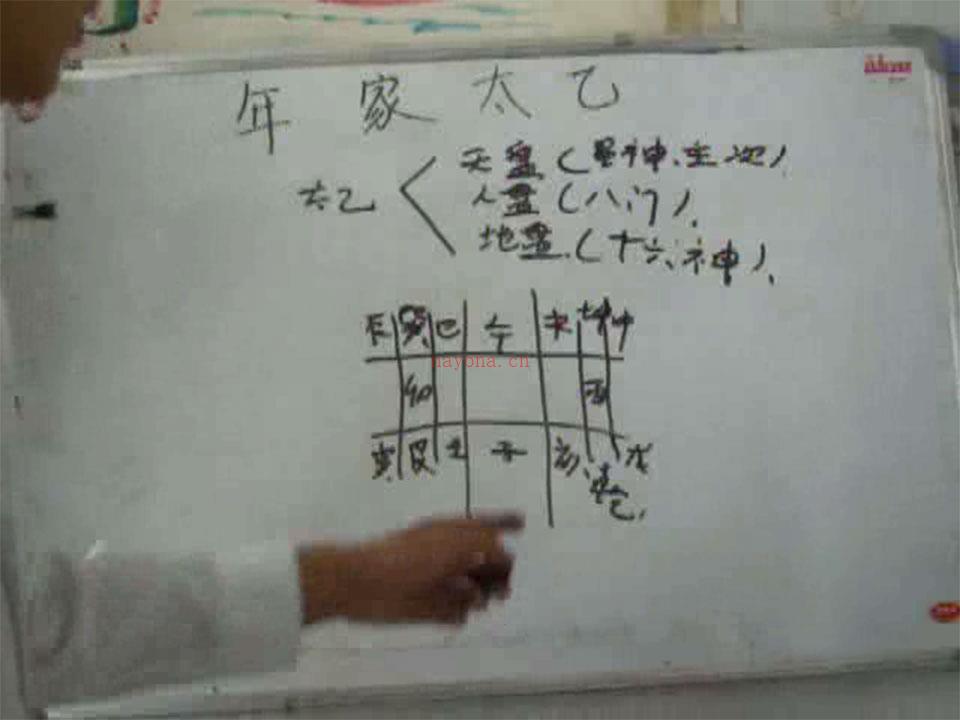 年家太乙
天盘(星神、主次)
太乙 人盘(八门)、
地盘.(十六神)、
辰 巽 巳 午 未 坤 申
nayona.cn
卯 酉
寅 艮 丑 子 亥 戌
乾